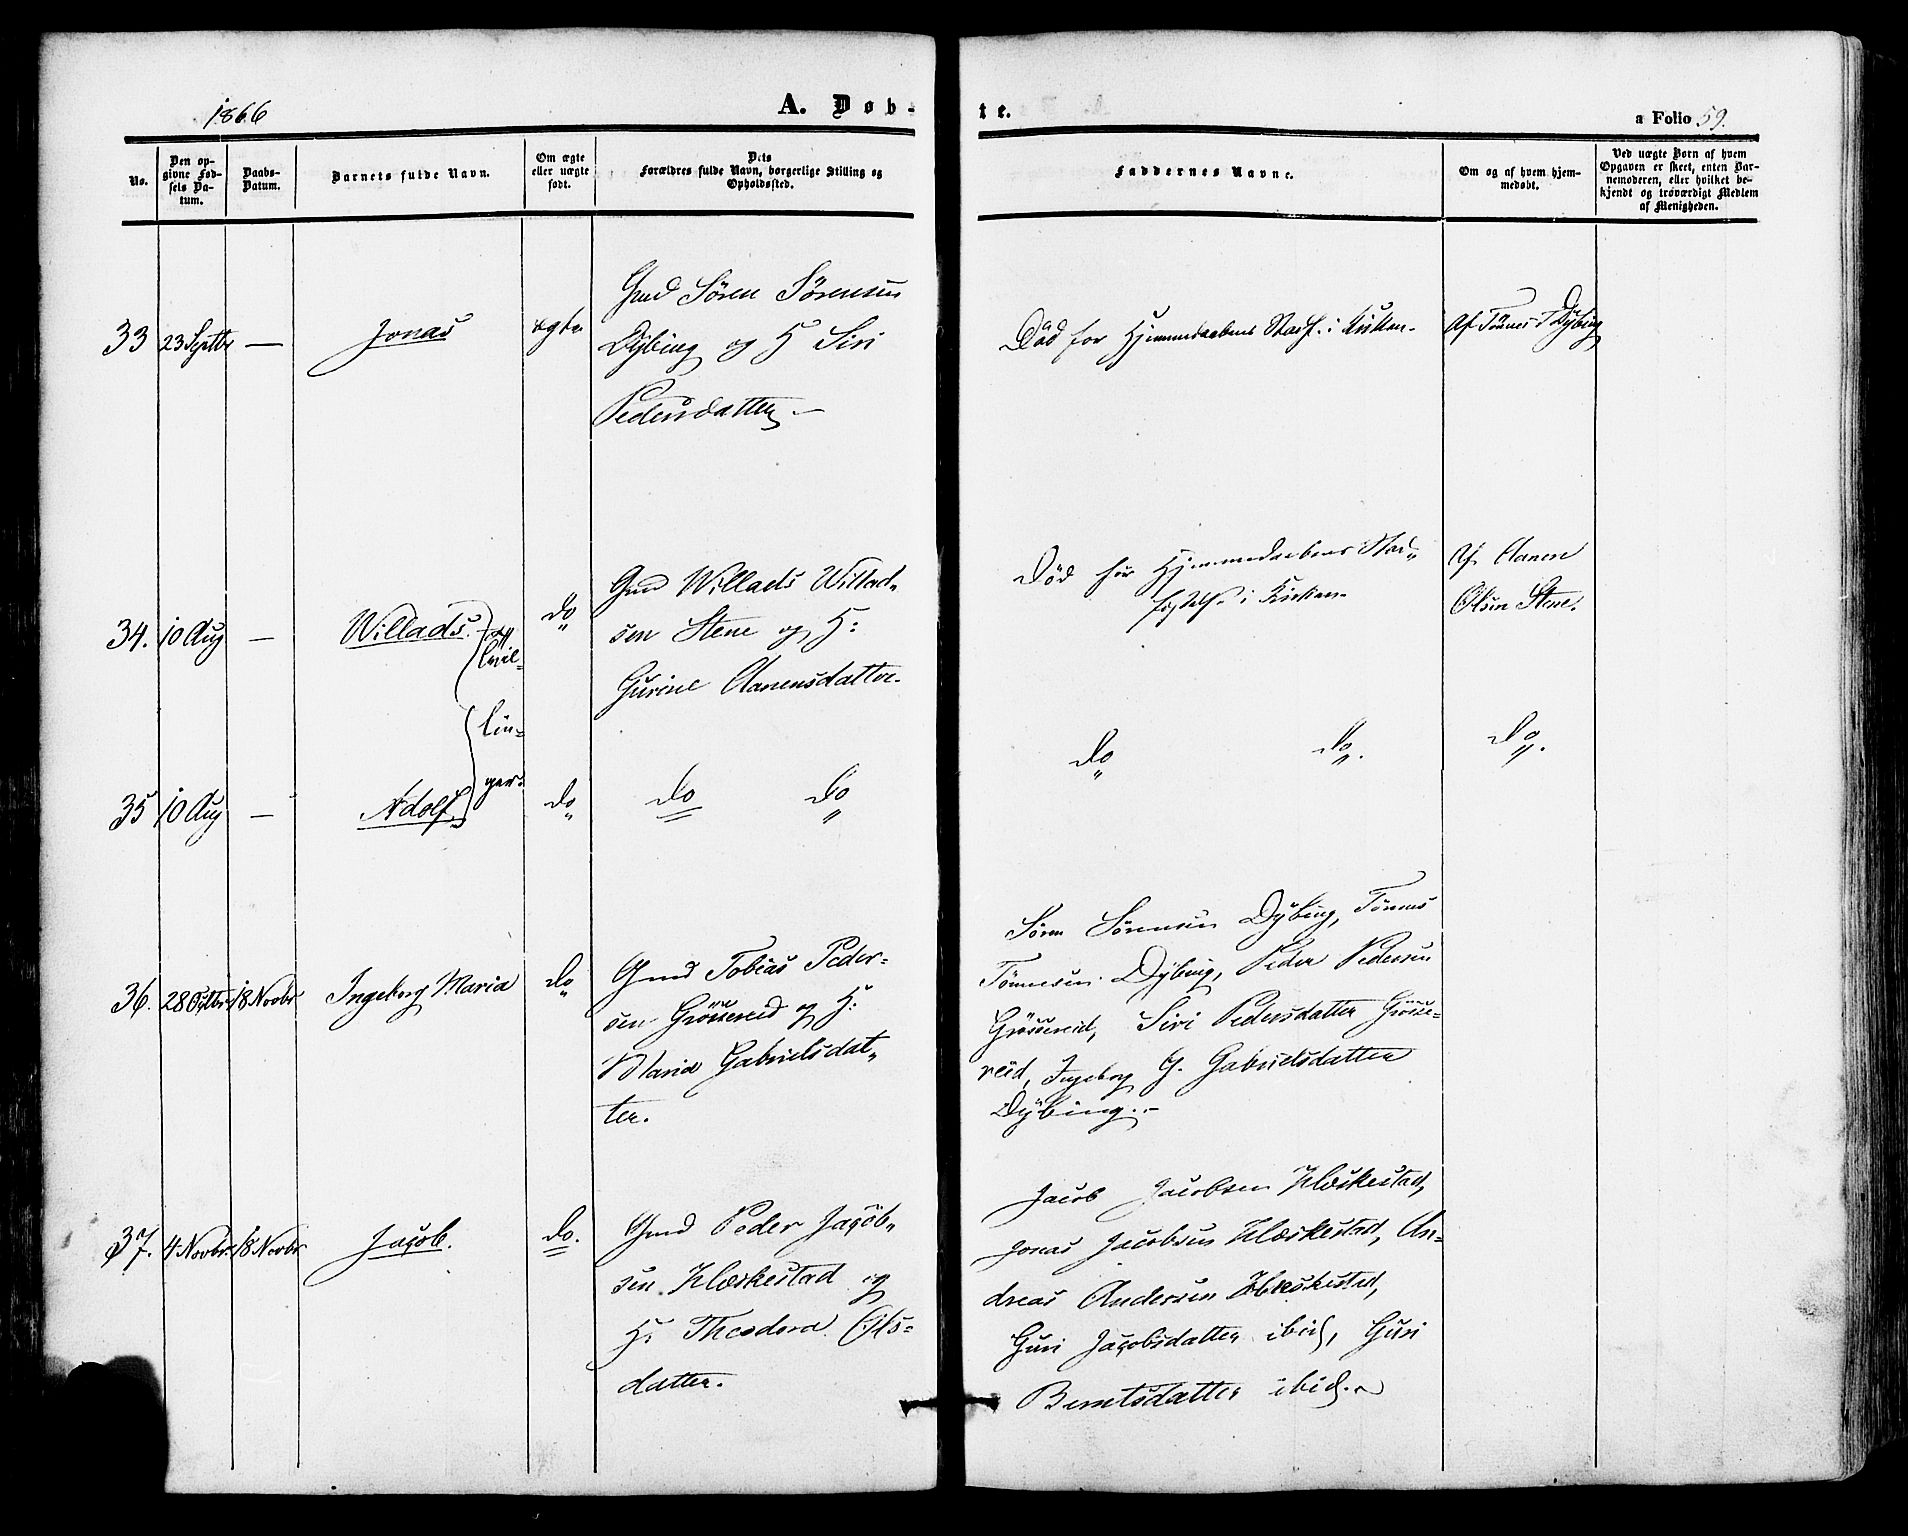 1866
A. Døb-
te.
a Folio 59.
No.
Den op-
givne Fød-
sels Da-
tum.
Daabs-
Datum.
Barnets fulde Navn.
Om ægte
eller uægte
født.
Dets
Forældres fulde Navn, borgerlige Stilling og
Opholdssted.
Faddernes Navne.
Om og af hvem hjem-
medøbt.
Ved uægte Børn af hvem
Opgaven er skeet, enten Bar-
nemoderen, eller hvilket be-
kjendt og troværdigt Medlem
af Menigheden.
33 23 Septbr — Jonas ægte
Gmd Sören Sörensen
Dÿbing og H Siri
Pedersdatter. —
Död for Hjemmedaabens Stadf. i Kirken.
Af Tönnes T Dÿbing
34. 10 Aug — Willads. do
Tvil-
lin-
ger.
Gmd Willads Willad-
sen Stene og H:
Gurine Aanensdatter.
Död för Hjemmedaabens Stad-
fæstelse i Kirken.
Af Aanen
Olsen Stene.
35 10 Aug — Adolf. do do do
do do. do.
36. 28 Octbr 18 Novbr Ingeborg Maria do
Gmd Tobias Peder-
sen Grössereid og H:
Maria Gabrielsdat-
ter.
Sören Sörensen Dÿbing, Tönnes
Tönnesen Dÿbing, Peder Pedersen
Grössereid, Siri Pedersdatter Grösse-
reid, Ingeborg G. Gabrielsdatter
Dÿbing. -
37. 4 Novbr. 18 Novbr. Jacob. do.
Gmd Peder Jacob-
sen Klæskestad og
H. Theodora Ols-
datter.
Jacob Jacobsen Klæskestad,
Jonas Jacobsen Klæskestad, An-
dreas Andersen Klæskestad,
Guri Jacobsdatter ibid, Guri
Berntsdatter ibid.